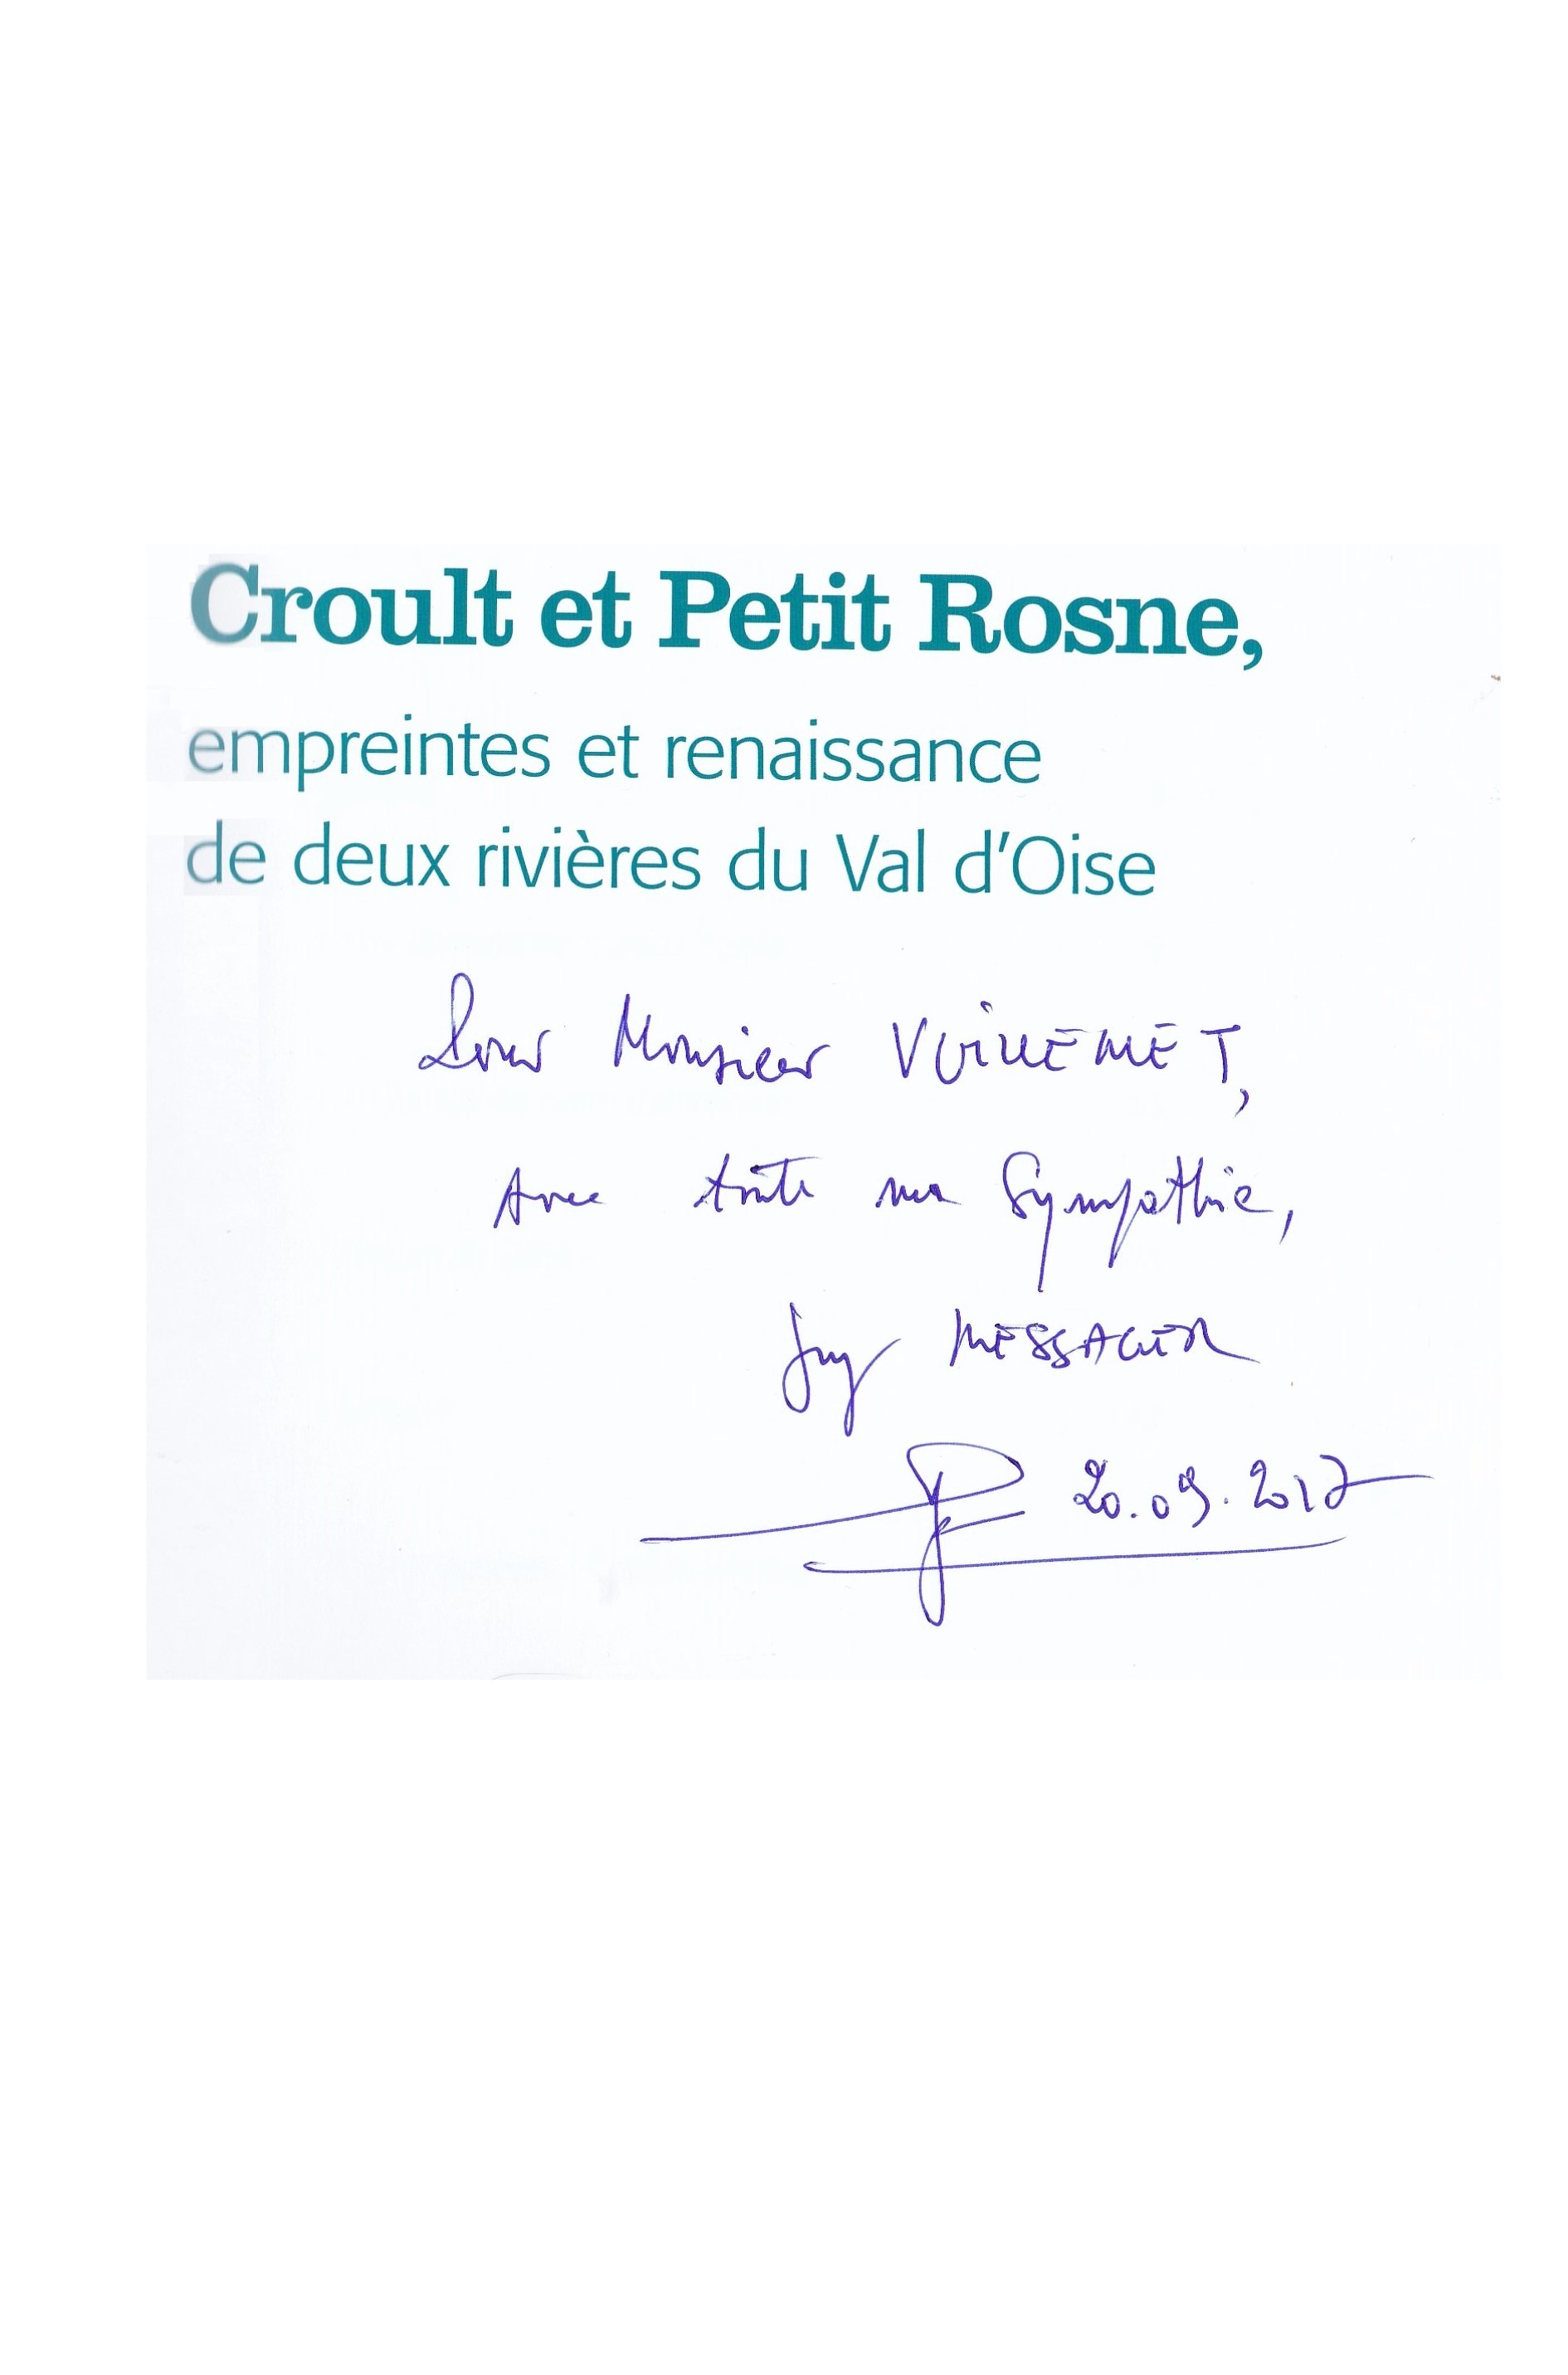 Croult et Petit Rosne,
empreintes et renaissance
de deux rivières du Val d'Oise
Pour Monsieur VUILLEMET,
Avec toute ma Sympathie,
Guy MESSAGER
20.09.2017